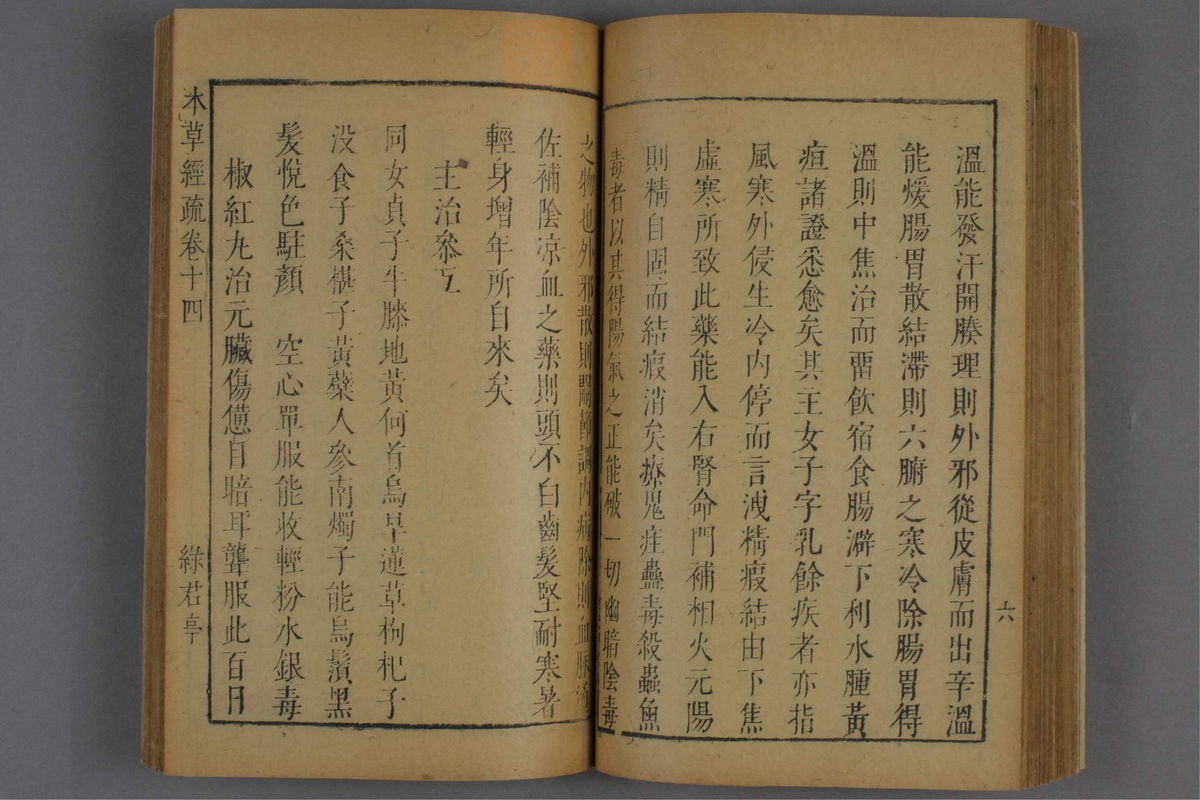 六
溫能發汗開腠理則外邪從皮膚而出辛溫
能煖腸胃散結滯則六腑之寒冷除腸胃得
溫則中焦治而畱飲宿食腸澼下利水腫黃
疸諸證悉愈矣其主女子字乳餘疾者亦指
風寒外侵生冷内停而言洩精瘕結由下焦
虛寒所致此藥能入右腎命門補相火元陽
則精自固而結瘕消矣療鬼疰蠱毒殺蟲魚
毒者以其得陽氣之正能破一切幽暗陰毒
之物也外邪散則關節調内病除則血脉通
佐補陰凉血之藥則頭不白齒髮堅耐寒暑
輕身增年所自來矣
主治叅互
同女貞子牛膝地黃何首烏旱蓮草枸杞子
没食子桑椹子黃蘗人參南燭子能烏鬚黑
髮悅色駐顔 空心單服能收輕粉水銀毒
椒紅丸治元臟傷憊目暗耳聾服此百日
本草經疏卷十四 綠君亭